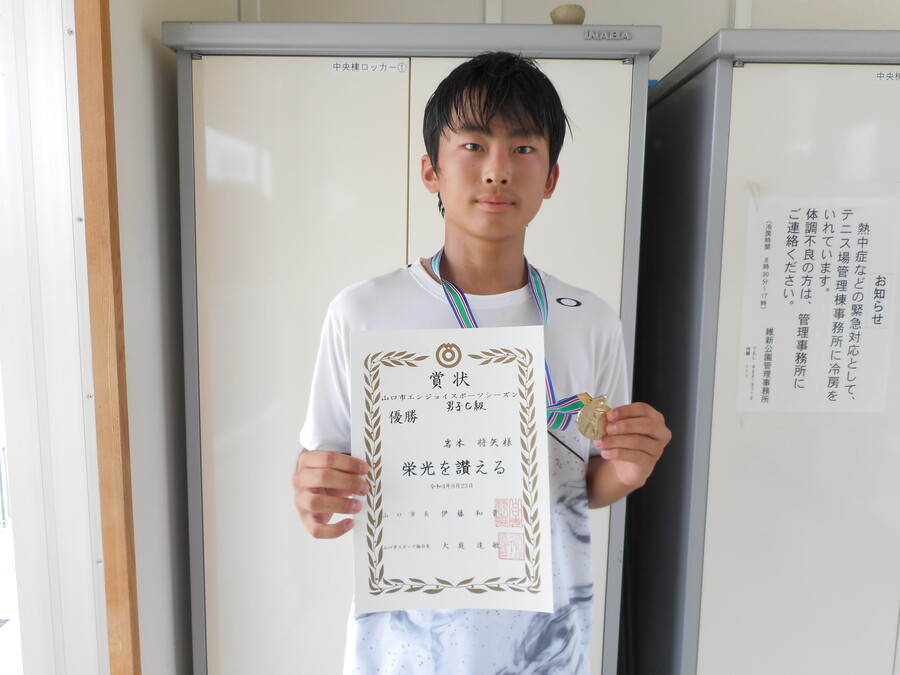 INABA
中央棟ロッカー①
中央棟
賞状
山口市エンジョイスポーツシーズン
男子C級
優勝
岩本 将矢様
栄光を讃える
令和4年9月23日
山口市長 伊藤和貴
山口市スポーツ協会会長 大庭達敏
お知らせ
熱中症などの緊急対応として、
テニス場管理棟事務所に冷房を
いれています。
体調不良の方は、管理事務所に
ご連絡ください。
(冷房時間 8時30分~17時)
維新公園管理事務所